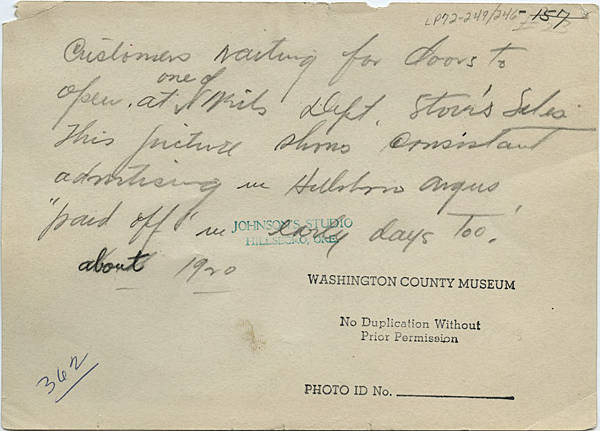 LP72-249/246-157
Customers waiting for doors to
one of
open. at Weils Dept. Store's Sales.
This picture shows consistant
advertising in Hillsboro Argus
"paid off" in early days too.
JOHNSON'S STUDIO
HILLSBORO, ORE.
about 1920
WASHINGTON COUNTY MUSEUM
No Duplication Without
Prior Permission
362
PHOTO ID No.